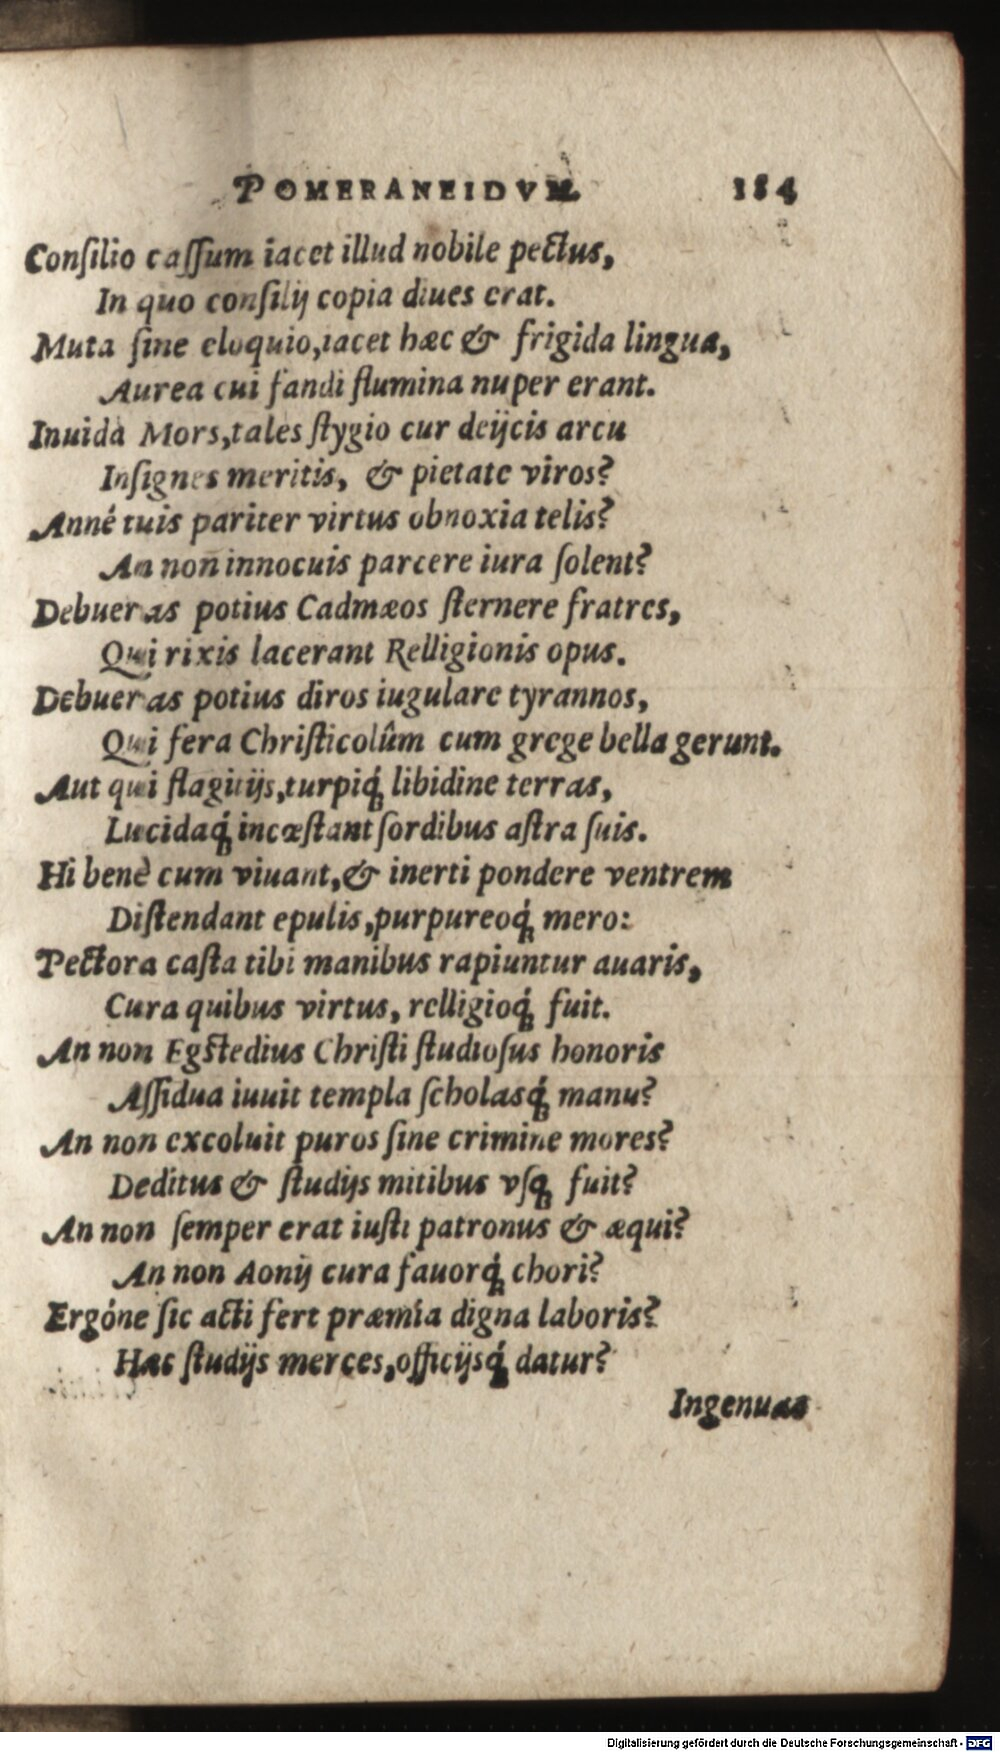 POMERANEIDVM. 184
Conſilio caſſum iacet illud nobile pectus,
In quo conſilij copia diues erat.
Muta ſine eloquio, iacet hæc & frigida lingua,
Aurea cui fandi flumina nuper erant.
Inuida Mors, tales ſtygio cur deijcis arcu
Inſignes meritis, & pietate viros?
Anné tuis pariter virtus obnoxia telis?
An non innocuis parcere iura ſolent?
Debueras potius Cadmæos ſternere fratres,
Qui rixis lacerant Relligionis opus.
Debueras potius diros iugulare tyrannos,
Qui fera Chriſticolûm cum grege bella gerunt.
Aut qui flagitijs, turpiq́; libidine terras,
Lucidaq́; incæſtant ſordibus aſtra ſuis.
Hi benè cum viuant, & inerti pondere ventrem
Diſtendant epulis, purpureoq́; mero:
Pectora caſta tibi manibus rapiuntur auaris,
Cura quibus virtus, relligioq́; fuit.
An non Egſtedius Chriſti ſtudioſus honoris
Aſſidua iuuit templa ſcholasq́; manu?
An non excoluit puros ſine crimine mores?
Deditus & ſtudijs mitibus vſq; fuit?
An non ſemper erat iuſti patronus & æqui?
An non Aonij cura fauorq́; chori?
Ergóne ſic acti fert præmia digna laboris?
Hæc ſtudijs merces, officijsq́; datur?
Ingenuas
Digitalisierung gefördert durch die Deutsche Forschungsgemeinschaft - DFG